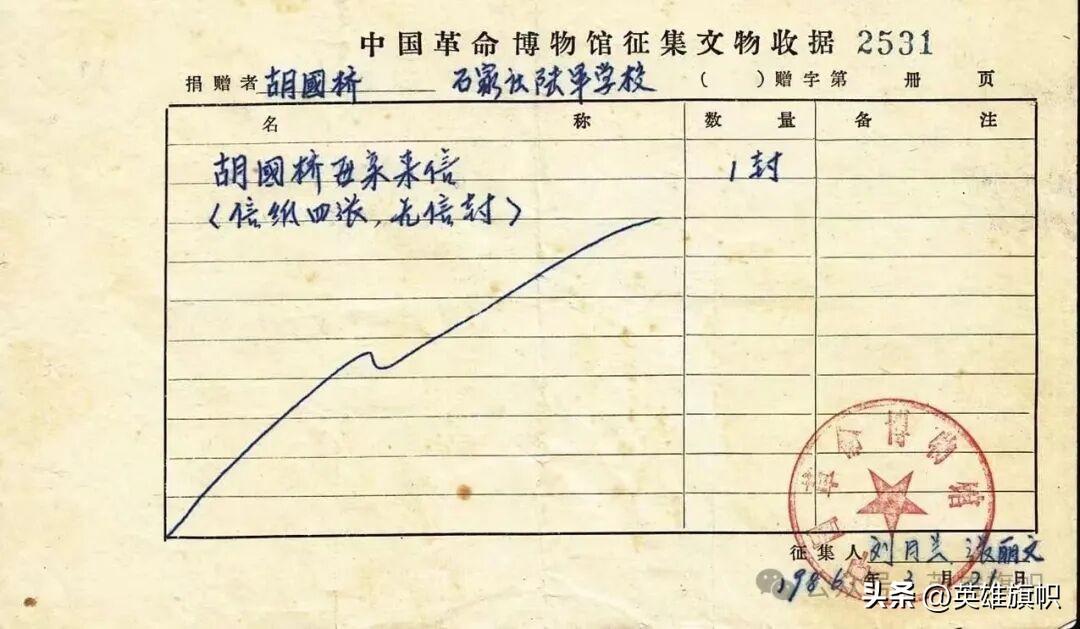 中国革命博物馆征集文物收据 2531
捐赠者 胡國桥 石家庄陆军学校 ( ) 赠字第 册 页
名 称 数 量 备 注
胡國桥母亲来信 1封
(信纸四张,无信封)
革命博物馆
征集人 刘月兰 张丽文
1986年3月21日
头条 @英雄旗帜